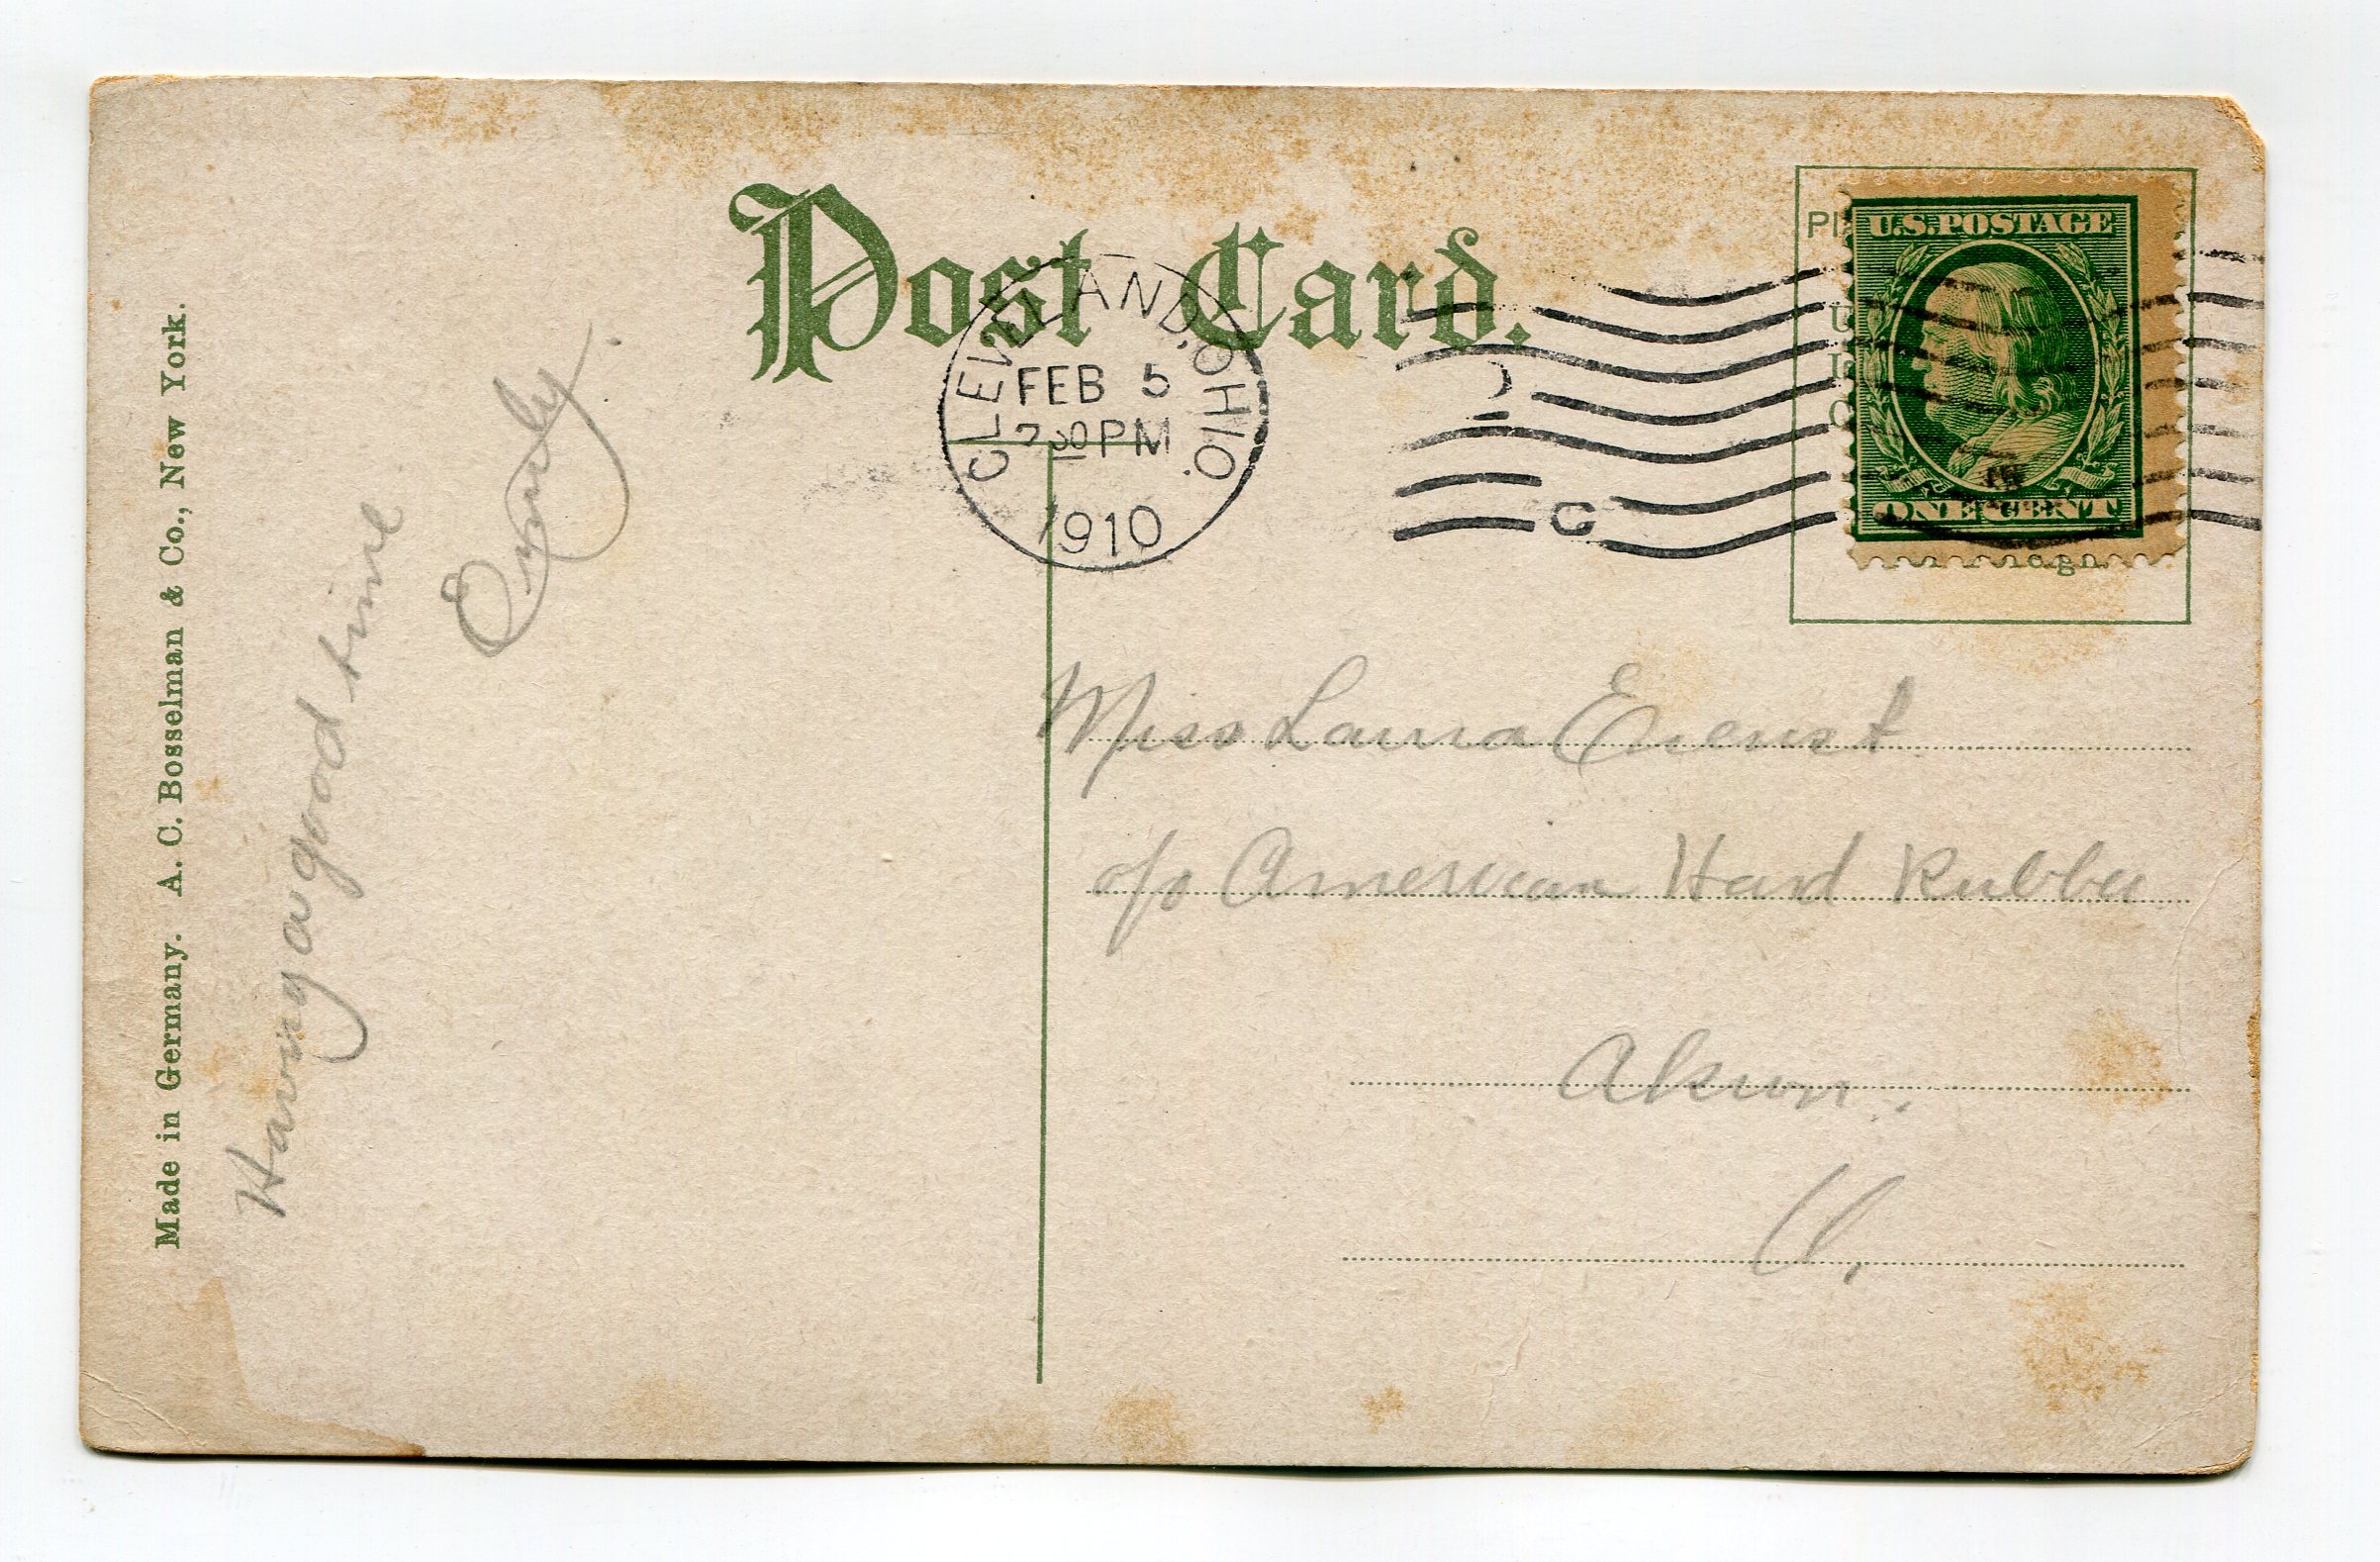 Post Card.
CLEVELAND, OHIO.
FEB 5
30 PM
1910
U.S. POSTAGE
ONE CENT
Made in Germany. A. C. Bosselman & Co., New York.
Having a good time
Miss Laura
c/o American Hard Rubber
Akron.
O.